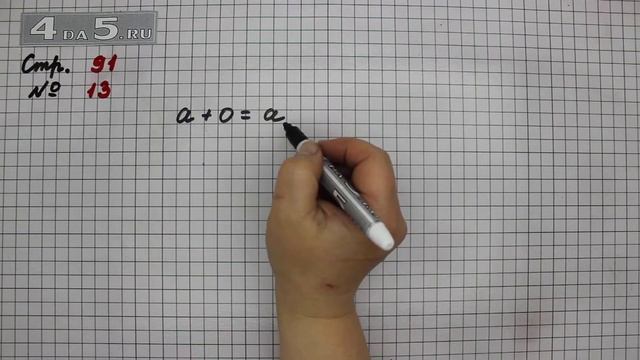 4 DA 5.RU
Стр. 91
№ 13
a + 0 = a